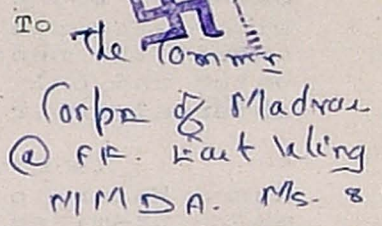 To
The Commr
Corpn of Madras
@ FF. East Wing
MMDA. Ms. 8